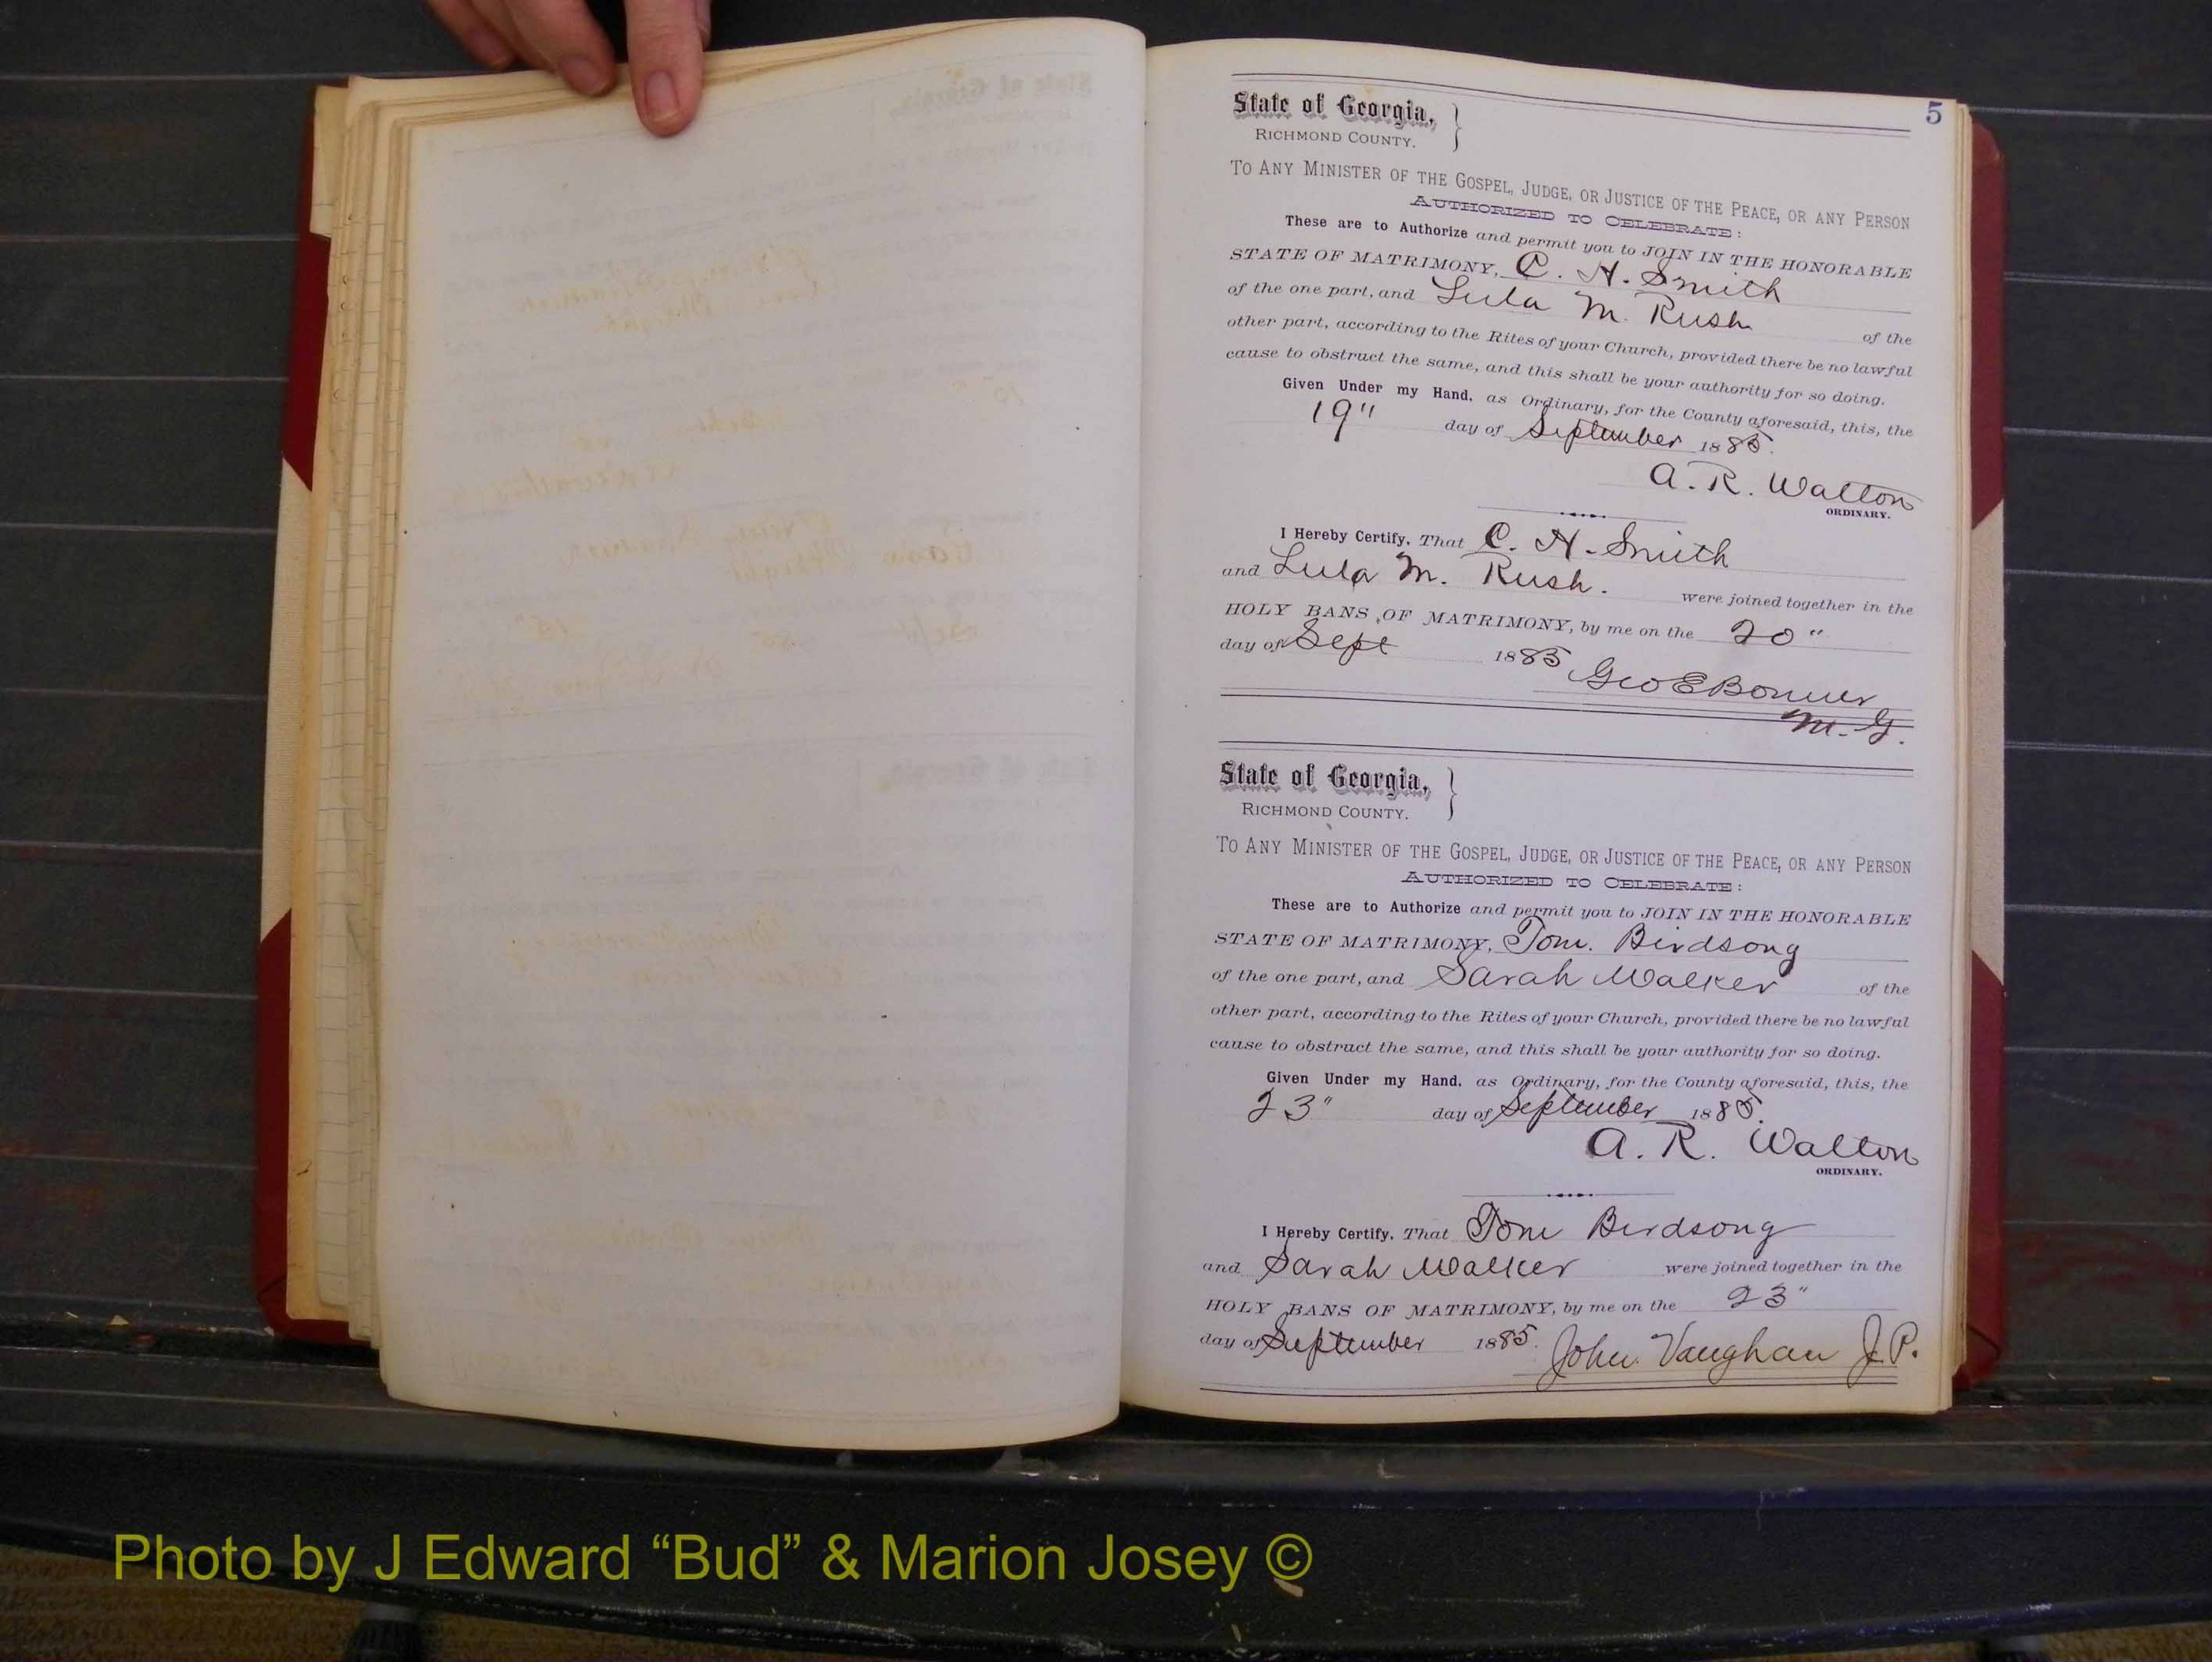 5
State of Georgia, }
RICHMOND COUNTY.
TO ANY MINISTER OF THE GOSPEL, JUDGE, OR JUSTICE OF THE PEACE, OR ANY PERSON
AUTHORIZED TO CELEBRATE:
These are to Authorize and permit you to JOIN IN THE HONORABLE
STATE OF MATRIMONY, C. H. Smith
of the one part, and Lula M. Rush of the
other part, according to the Rites of your Church, provided there be no lawful
cause to obstruct the same, and this shall be your authority for so doing.
Given Under my Hand, as Ordinary, for the County aforesaid, this, the
19" day of September 1885.
A. R. Walton
ORDINARY.
I Hereby Certify, That C. H. Smith
and Lula M. Rush. were joined together in the
HOLY BANS OF MATRIMONY, by me on the 20"
day of Sept 1885 Geo E Bonner
M. G.
State of Georgia, }
RICHMOND COUNTY.
TO ANY MINISTER OF THE GOSPEL, JUDGE, OR JUSTICE OF THE PEACE, OR ANY PERSON
AUTHORIZED TO CELEBRATE:
These are to Authorize and permit you to JOIN IN THE HONORABLE
STATE OF MATRIMONY, Tom. Birdsong
of the one part, and Sarah Walker of the
other part, according to the Rites of your Church, provided there be no lawful
cause to obstruct the same, and this shall be your authority for so doing.
Given Under my Hand, as Ordinary, for the County aforesaid, this, the
23" day of September 1885.
A. R. Walton
ORDINARY.
I Hereby Certify, That Tom Birdsong
and Sarah Walker were joined together in the
HOLY BANS OF MATRIMONY, by me on the 23"
day of September 1885. John Vaughan J.P.
Photo by J Edward “Bud” & Marion Josey ©